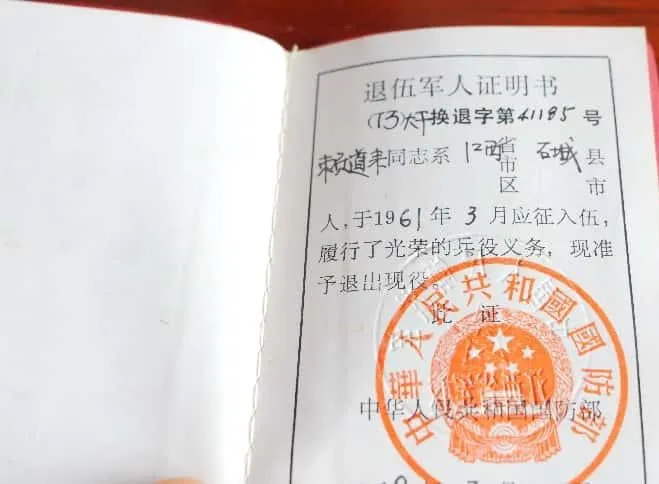 退伍军人证明书
换退字第41185号
道来同志系 江西 省市区 石城 县市
人,于1961年3月应征入伍,
履行了光荣的兵役义务,现准
予退出现役。
此证
中华人民共和国国防部
中華人民共和國國防部